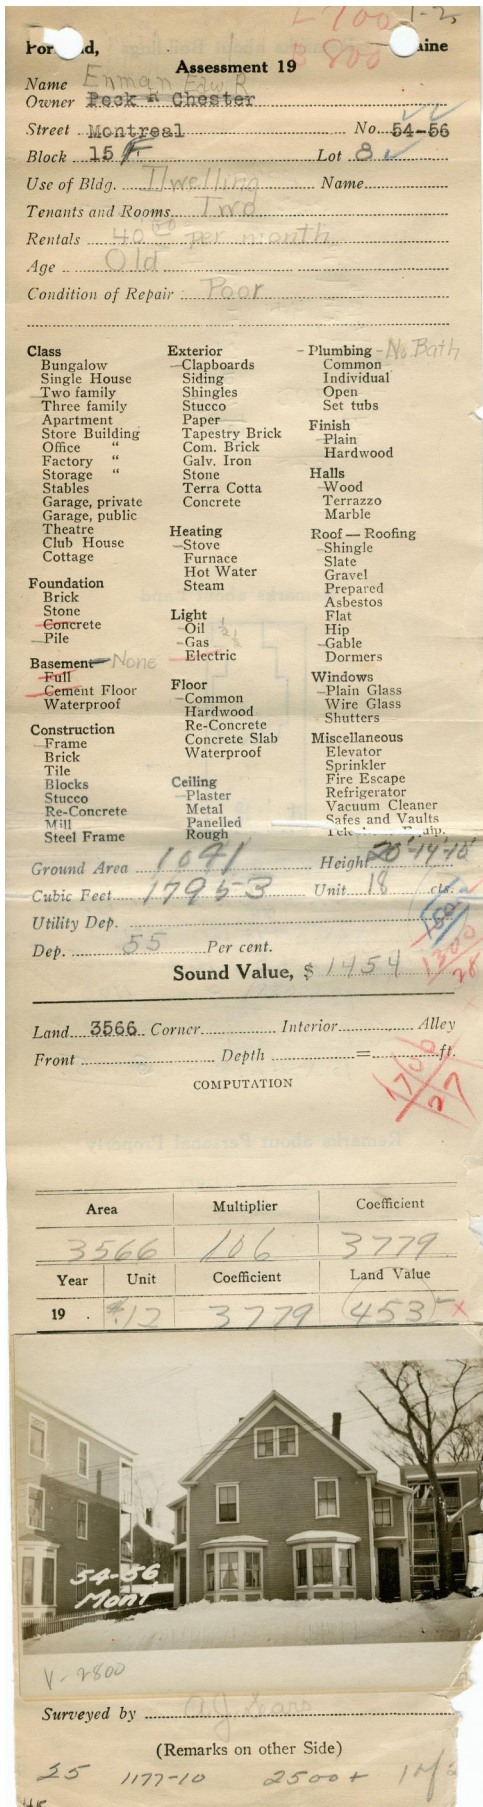 L 700 1-2
Portland, Maine
B 800
Assessment 19
Name Enman Edw R
Owner Peck R Chester
Street Montreal No. 54-56
Block 15 F Lot 8
Use of Bldg. Dwelling Name
Tenants and Rooms Two
Rentals 40 00 per month
Age Old
Condition of Repair Poor
Class
Bungalow
Single House
Two family
Three family
Apartment
Store Building
Office "
Factory "
Storage "
Stables
Garage, private
Garage, public
Theatre
Club House
Cottage
Foundation
Brick
Stone
Concrete
Pile
Basement None
Full
Cement Floor
Waterproof
Construction
Frame
Brick
Tile
Blocks
Stucco
Re-Concrete
Mill
Steel Frame
Exterior
Clapboards
Siding
Shingles
Stucco
Paper
Tapestry Brick
Com. Brick
Galv. Iron
Stone
Terra Cotta
Concrete
Heating
Stove
Furnace
Hot Water
Steam
Light
Oil ½
Gas ½
Electric
Floor
Common
Hardwood
Re-Concrete
Concrete Slab
Waterproof
Ceiling
Plaster
Metal
Panelled
Rough
Plumbing - No Bath
Common
Individual
Open
Set tubs
Finish
Plain
Hardwood
Halls
Wood
Terrazzo
Marble
Roof — Roofing
Shingle
Slate
Gravel
Prepared
Asbestos
Flat
Hip
Gable
Dormers
Windows
Plain Glass
Wire Glass
Shutters
Miscellaneous
Elevator
Sprinkler
Fire Escape
Refrigerator
Vacuum Cleaner
Safes and Vaults
Ground Area 1041 Height 20'-14'-10'
Cubic Feet 17953 Unit 18 cts.
Utility Dep.
Dep. 55 Per cent.
1300
28
Sound Value, $ 1454
Land 3566 Corner Interior Alley
Front Depth = ft.
COMPUTATION
1700
27
Area Multiplier Coefficient
3566 106 3779
Year Unit Coefficient Land Value
19 . $.12 3779 453
54-56
Mont
V-2800
Surveyed by A.J. Sears
(Remarks on other Side)
25 1177-10 2500+